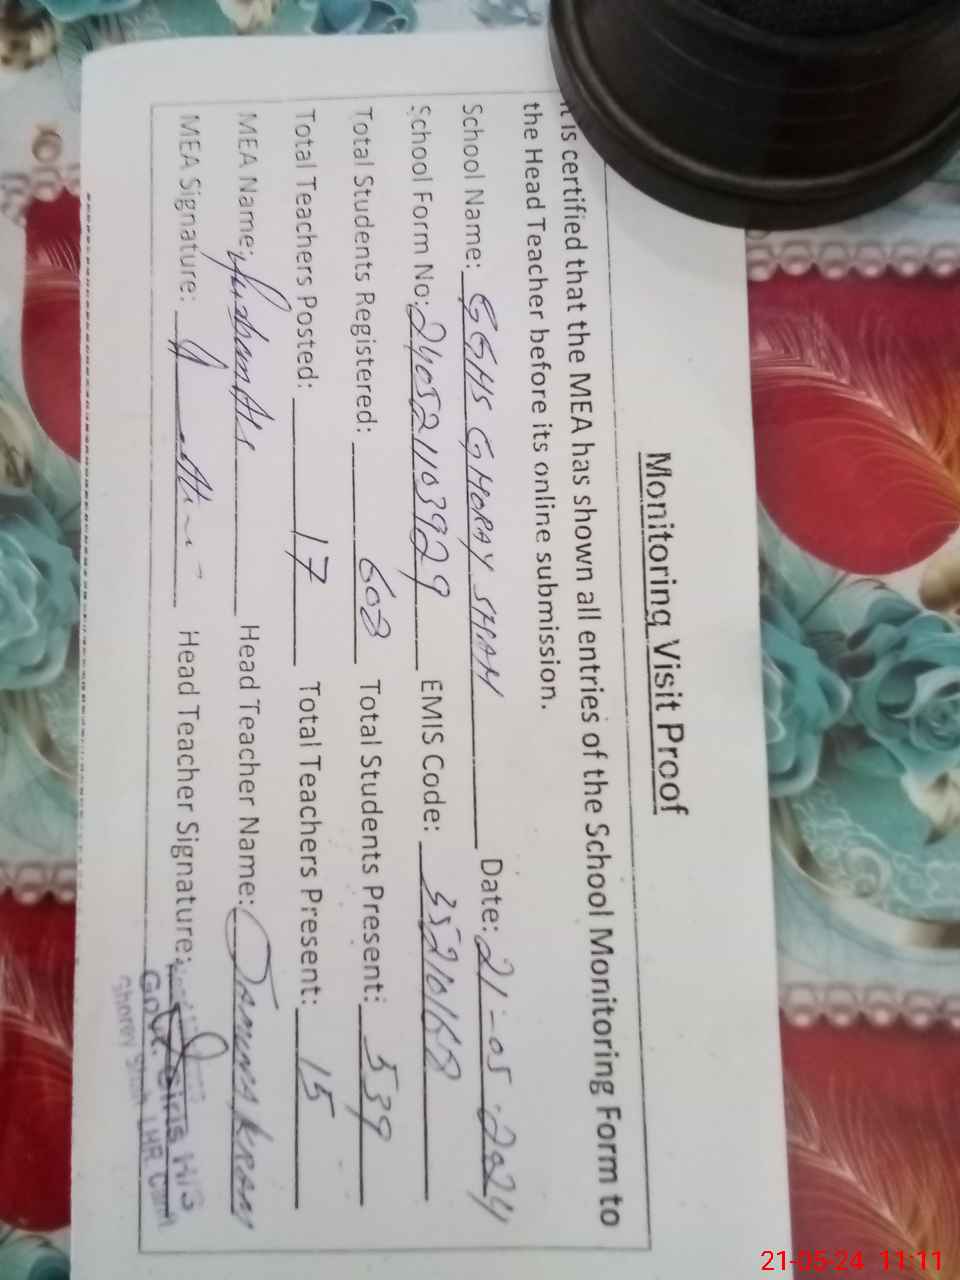 Monitoring Visit Proof
It is certified that the MEA has shown all entries of the School Monitoring Form to
the Head Teacher before its online submission.
School Name: GGHS GHORAY SHAH Date: 21-05-2024
School Form No: 240521103929 EMIS Code: 35210168
Total Students Registered: 608 Total Students Present: 539
Total Teachers Posted: 17 Total Teachers Present: 15
MEA Name: Head Teacher Name:
MEA Signature: Head Teacher Signature:
Govt. Girls H/S
Ghorey Shah LHR Cantt
21-05-24 11:11